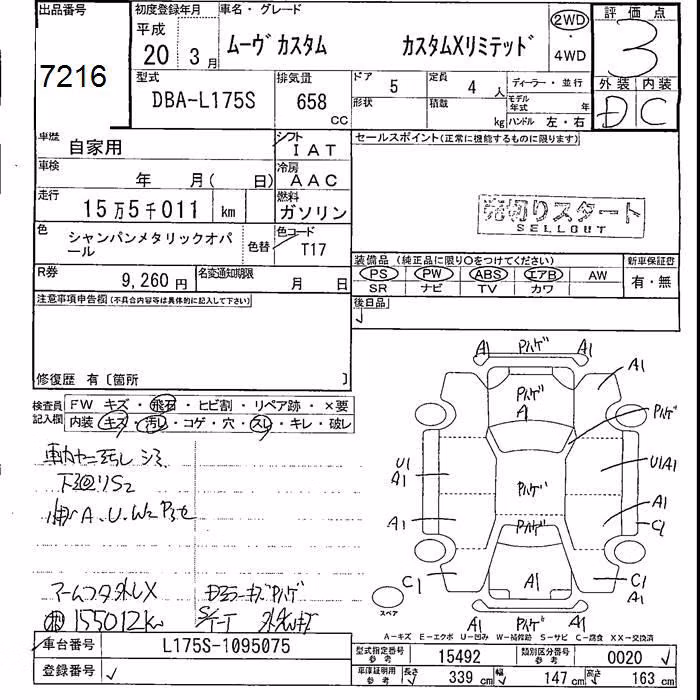 出品番号
7216
初度登録年月
平成
20 3月
車名・グレード
ムーヴカスタム カスタムXリミテッド
2WD
・
4WD
評価点
3
外装 内装
D C
型式
DBA-L175S
排気量
658 CC
ドア 5
定員 4 人
形状
積載 kg
ディーラー・並行
モデル年式 年
ハンドル 左・右
車歴 自家用
シフト IAT
車検 年 月( 日)
冷房 AAC
走行 15万5千011 km
燃料 ガソリン
色 シャンパンメタリックオパール
色替
色コード T17
R券 9,260円
名変通知期限 月 日
セールスポイント(正常に機能するものに限ります)
売切りスタート
SELLOUT
装備品 (純正品に限り○をつけてください)
PS PW ABS エアB AW
SR ナビ TV カワ
新車保証書
有・無
後日品
注意事項申告欄(不具合内容等は具体的に記入して下さい)
修復歴 有〔箇所 〕
検査員記入欄
FW キズ・飛石・ヒビ割・リペア跡・×要
内装 キズ・汚レ・コゲ・穴・スレ・キレ・破レ
下廻りS2
A.U.W2
155012km
A1 Pハゲ A1
A1
Pハゲ
A1
Pハゲ
U1
A1
Pハゲ
U1A1
Pハゲ
A1
A1
C1
C1
A1
C1
A1
A1 Pハゲ A1
スペア
A-キズ E-エクボ U-凹み W-補修跡 S-サビ C-腐食 XX-交換済
車台番号 L175S-1095075
登録番号
型式指定番号 参考 15492
類別区分番号 参考 0020
車庫証明用 参考 長さ 339 cm 幅 147 cm 高さ 163 cm